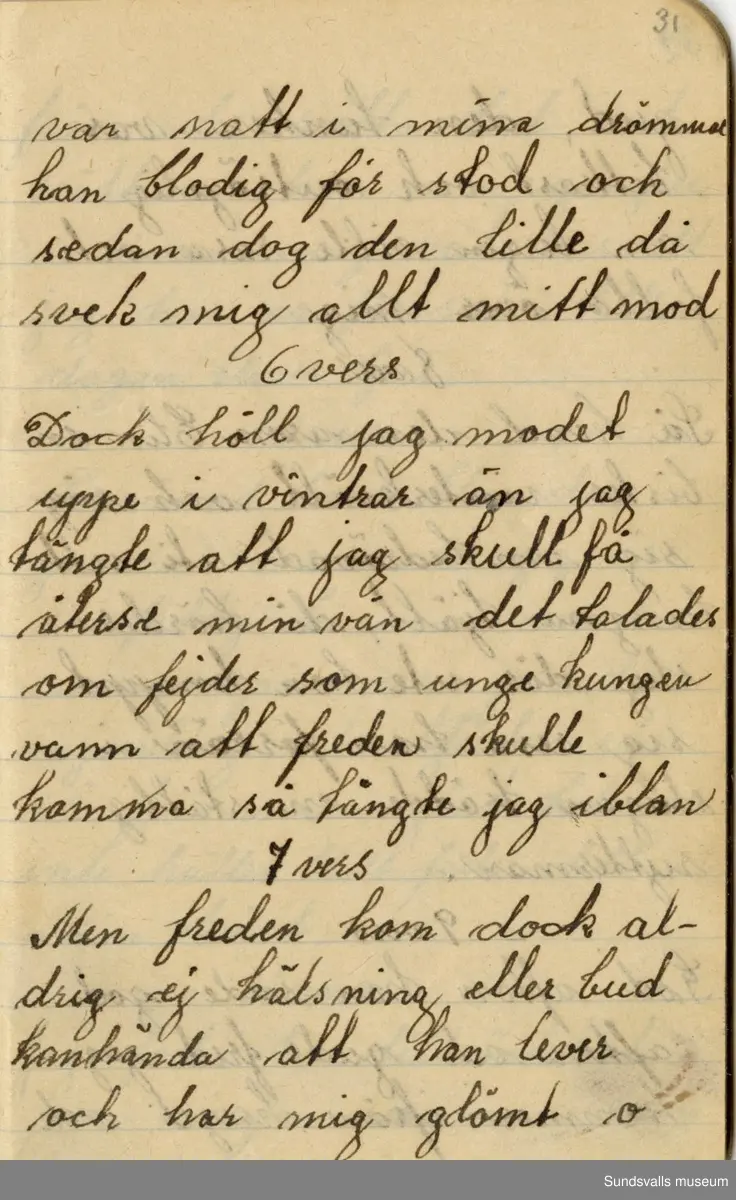 31
var natt i mina drömmar
han blodig för stod och
sedan dog den lille då
svek mig allt mitt mod
6 vers
Dock höll jag modet
uppe i vintrar än jag
tängte att jag skull få
återse min vän det talades
om fejder som unge kungen
vann att freden skulle
komma så tängte jag iblan
7 vers
Men freden kom dock al-
drig ej hälsning eller bud
kanhända att han lever
och har mig glömt o
Sundsvalls museum